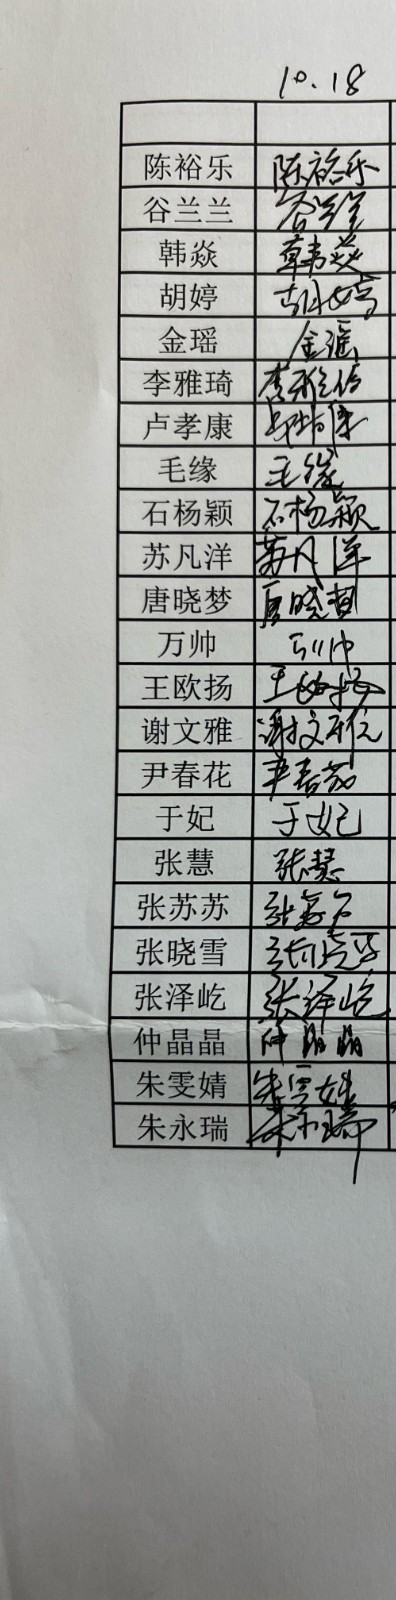 10.18
陈裕乐 陈裕乐
谷兰兰 谷兰兰
韩焱 韩焱
胡婷 胡婷
金瑶 金瑶
李雅琦 李雅琦
卢孝康 卢孝康
毛缘 毛缘
石杨颖 石杨颖
苏凡洋 苏凡洋
唐晓梦 唐晓梦
万帅 万帅
王欧扬 王欧扬
谢文雅 谢文雅
尹春花 尹春花
于妃 于妃
张慧 张慧
张苏苏 张苏苏
张晓雪 张晓雪
张泽屹 张泽屹
仲晶晶 仲晶晶
朱雯婧 朱雯婧
朱永瑞 朱永瑞